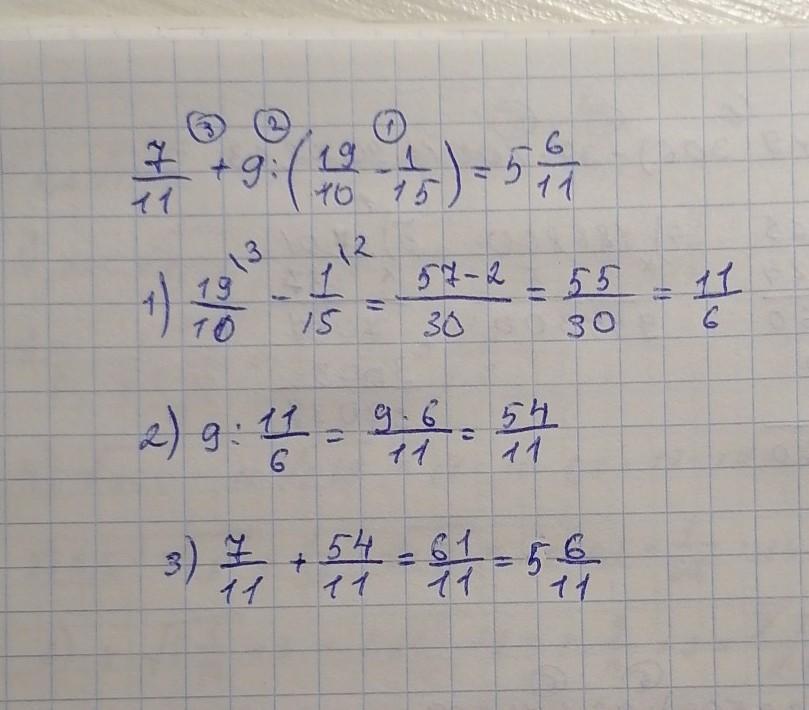 ③ ② ①
7/11 + 9 : (19/10 - 1/15) = 5 6/11
1) 19/10 \3 - 1/15 \2 = 57-2/30 = 55/30 = 11/6
2) 9 : 11/6 = 9·6/11 = 54/11
3) 7/11 + 54/11 = 61/11 = 5 6/11